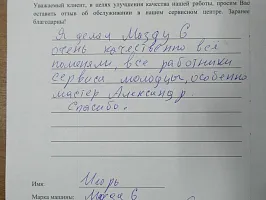 Уважаемый клиент, в целях улучшения качества нашей работы, просим Вас
оставить отзыв об обслуживании в нашем сервисном центре. Заранее
благодарны!
Я делал Мазду 6
очень качественно все
поменяли, все работники
сервиса молодцы, особенно
мастер Александр.
Спасибо.
Имя: Игорь
Марка машины: Мазда 6